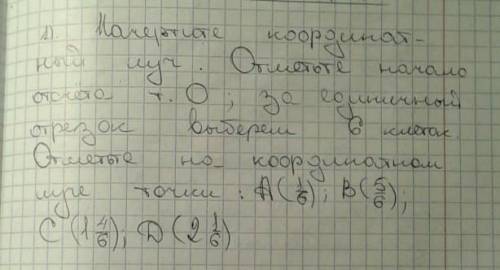 1). Начертите координат-
ный луч. Отметьте начало
отсчёта т. О; за единичный
отрезок выберем 6 клеток.
Отметьте на координатном
луче точки: A(1/6); B(5/6);
C(1 4/6); D(2 1/6)